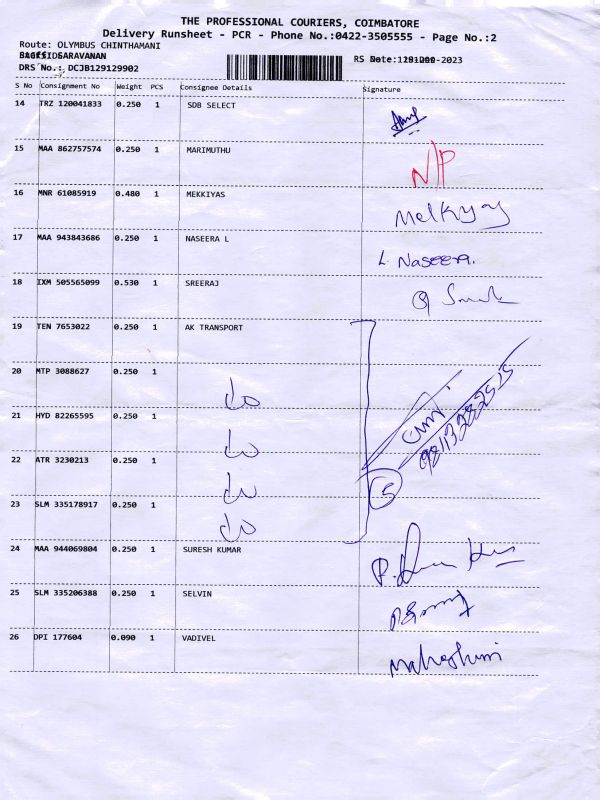 THE PROFESSIONAL COURIERS, COIMBATORE
Delivery Runsheet - PCR - Phone No.:0422-3505555 - Page No.:2
Route: OLYMBUS CHINTHAMANI
SARAVANAN
DRS No.: DCJB129129902
RS No
S No Consignment No Weight PCS Consignee Details Signature
14 TRZ 120041833 0.250 1 SDB SELECT
15 MAA 862757574 0.250 1 MARIMUTHU N/P
16 MNR 61085919 0.480 1 MEKKIYAS Melkyas
17 MAA 943843686 0.250 1 NASEERA L L. Naseera.
18 IXM 505565099 0.530 1 SREERAJ
19 TEN 7653022 0.250 1 AK TRANSPORT
20 MTP 3088627 0.250 1 do
21 HYD 82265595 0.250 1 do
22 ATR 3230213 0.250 1 do
5
23 SLM 335178917 0.250 1 do
24 MAA 944069804 0.250 1 SURESH KUMAR
25 SLM 335206388 0.250 1 SELVIN
26 DPI 177604 0.090 1 VADIVEL